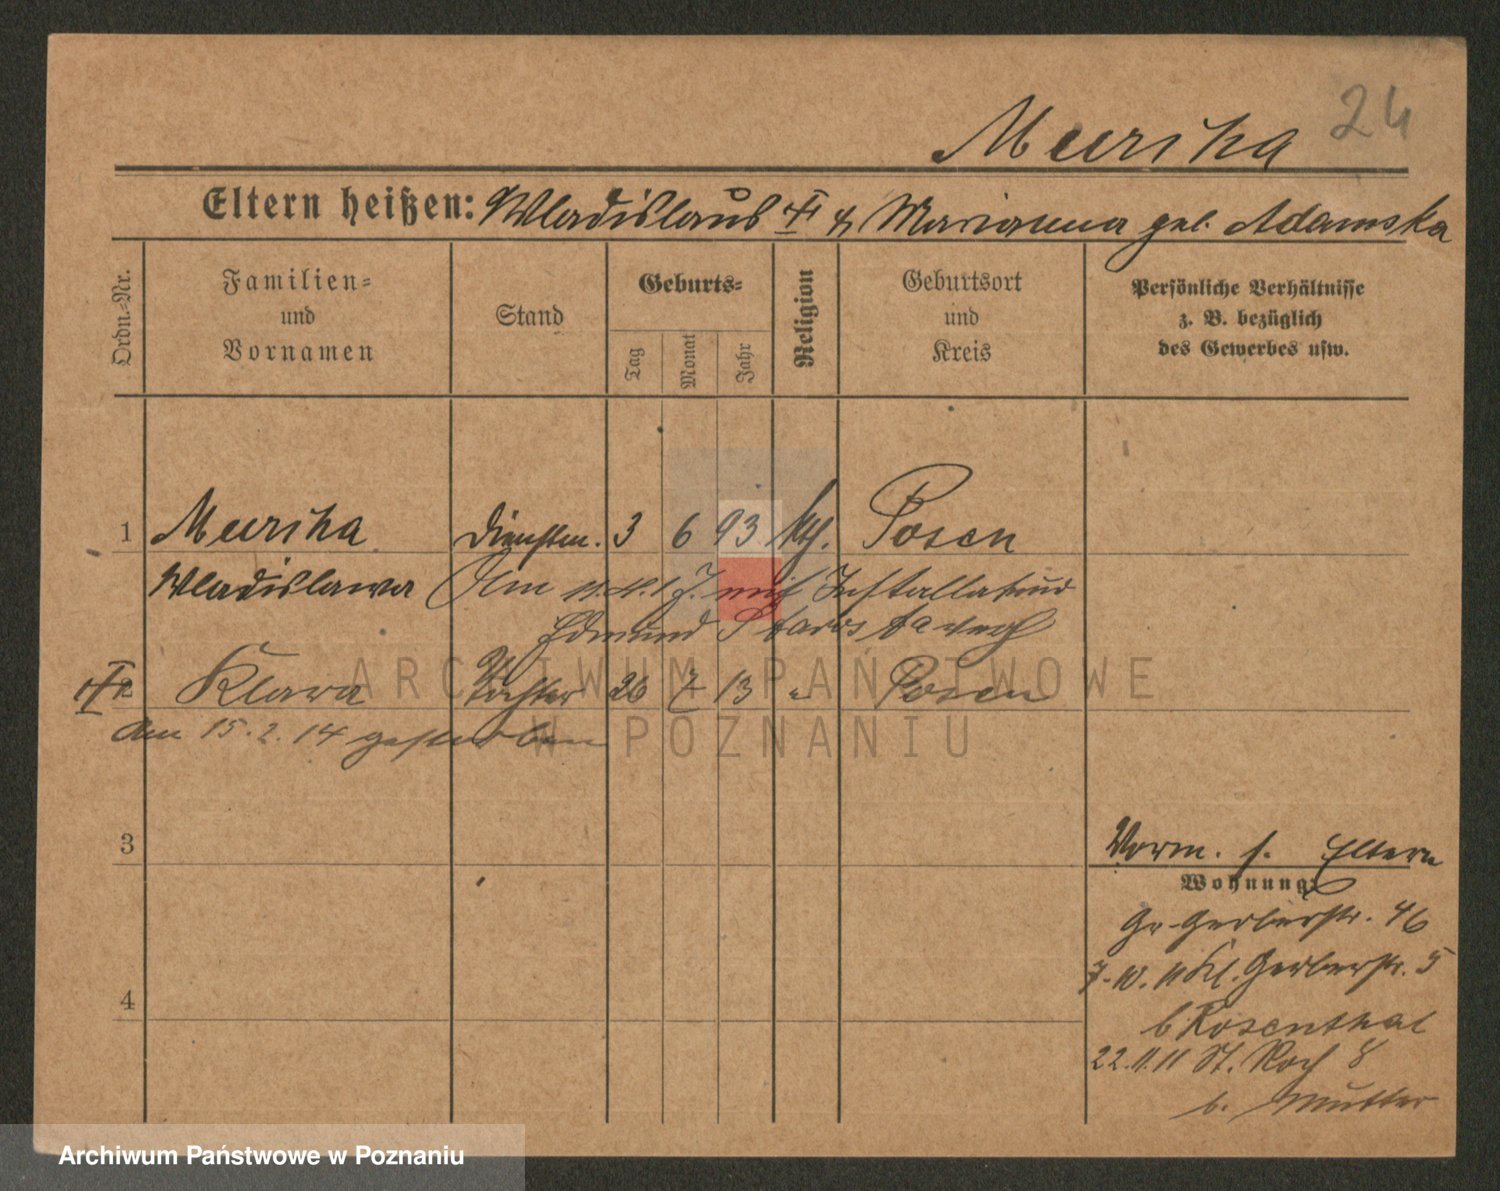 24
Murcha
Eltern heißen: Wladislaus & Marianna geb. Adamska
Ordn.-Nr.
Familien-
und
Vornamen
Stand
Geburts-
Tag
Monat
Jahr
Religion
Geburtsort
und
Kreis
Persönliche Verhältnisse
z. B. bezüglich
des Gewerbes usw.
1 Dienstm. 3 6 93 kth. Posen
Wladislawa
mit
Edmund
2 Klara Tochter 26 7 13 " Posen
Am 15.2.14 gestorben
3
4
Vorm. s. Eltern
Wohnung:
Gr. Gerberstr. 46
7.10.11 Kl. Gerberstr. 5
b Rosenthal
22.11.11 St. Roch 8
b. Mutter
ARCHIWUM PAŃSTWOWE
W POZNANIU
Archiwum Państwowe w Poznaniu